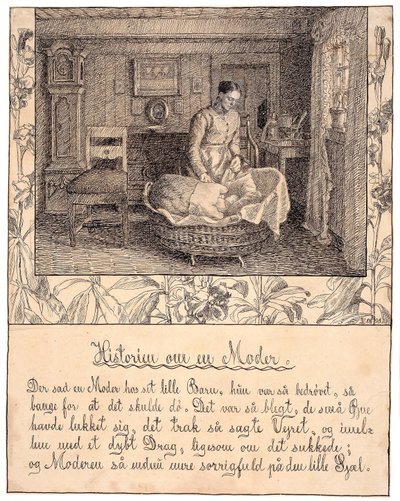 Historien om en Moder.
Der sad en Moder hos sit lille Barn, hun var så bedrövet, så
bange for at det skulde dö. Det var så blegt, de små Öjne
havde lukket sig, det trak så sagte Vejret, og imel=
lem med et dybt Drag, ligesom om det sukkede;
og Moderen så endnu mere sorrigfuld på den lille Sjæl.